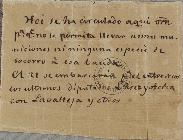 Hoi se ha circulado aqui orn
pa qe no se permita llevar armas mu
niciones ni ninguna especie de
socorro á esa banda.
El 21 se embarcaron
los ultimos diputados
con Lavalleja y otros